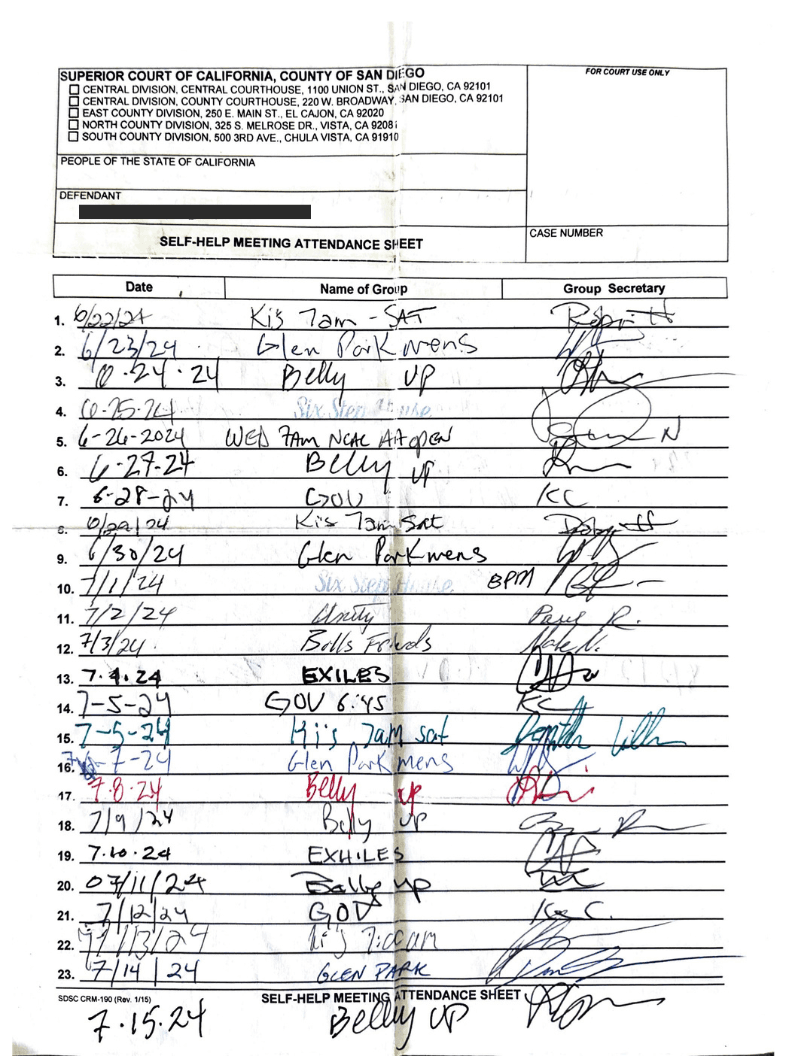 SUPERIOR COURT OF CALIFORNIA, COUNTY OF SAN DIEGO
☐ CENTRAL DIVISION, CENTRAL COURTHOUSE, 1100 UNION ST., SAN DIEGO, CA 92101
☐ CENTRAL DIVISION, COUNTY COURTHOUSE, 220 W. BROADWAY, SAN DIEGO, CA 92101
☐ EAST COUNTY DIVISION, 250 E. MAIN ST., EL CAJON, CA 92020
☐ NORTH COUNTY DIVISION, 325 S. MELROSE DR., VISTA, CA 92081
☐ SOUTH COUNTY DIVISION, 500 3RD AVE., CHULA VISTA, CA 91910
FOR COURT USE ONLY
PEOPLE OF THE STATE OF CALIFORNIA
DEFENDANT
SELF-HELP MEETING ATTENDANCE SHEET
CASE NUMBER
Date Name of Group Group Secretary
1. 6/22/24 Ki's 7am - SAT
2. 6/23/24 Glen Park mens
3. 6.24.24 Belly UP
4. 6-25-24 Six Step House
5. 6-26-2024 WED 7AM NCAC AA OPEN N
6. 6-27-24 Belly UP
7. 6-28-24 GOV KC
8. 6/29/24 Ki's 7am Sat
9. 6/30/24 Glen Park mens
10. 7/1/24 Six Step House 8PM
11. 7/2/24 Unity R.
12. 7/3/24 Bills Friends
13. 7.4.24 EXILES
14. 7-5-24 GOV 6:45 KC
15. 7-5-24 Ki's 7am sat
16. 7-24 Glen Park mens
17. 7.8.24 Belly up
18. 7/9/24 Belly UP
19. 7.10.24 EXHILES
20. 07/11/24 Belly up
21. 7/12/24 GOV C.
22. 7/13/24 Ki's 7:00am
23. 7/14/24 GLEN PARK
SDSC CRM-190 (Rev. 1/15) SELF-HELP MEETING ATTENDANCE SHEET
7.15.24 Belly UP